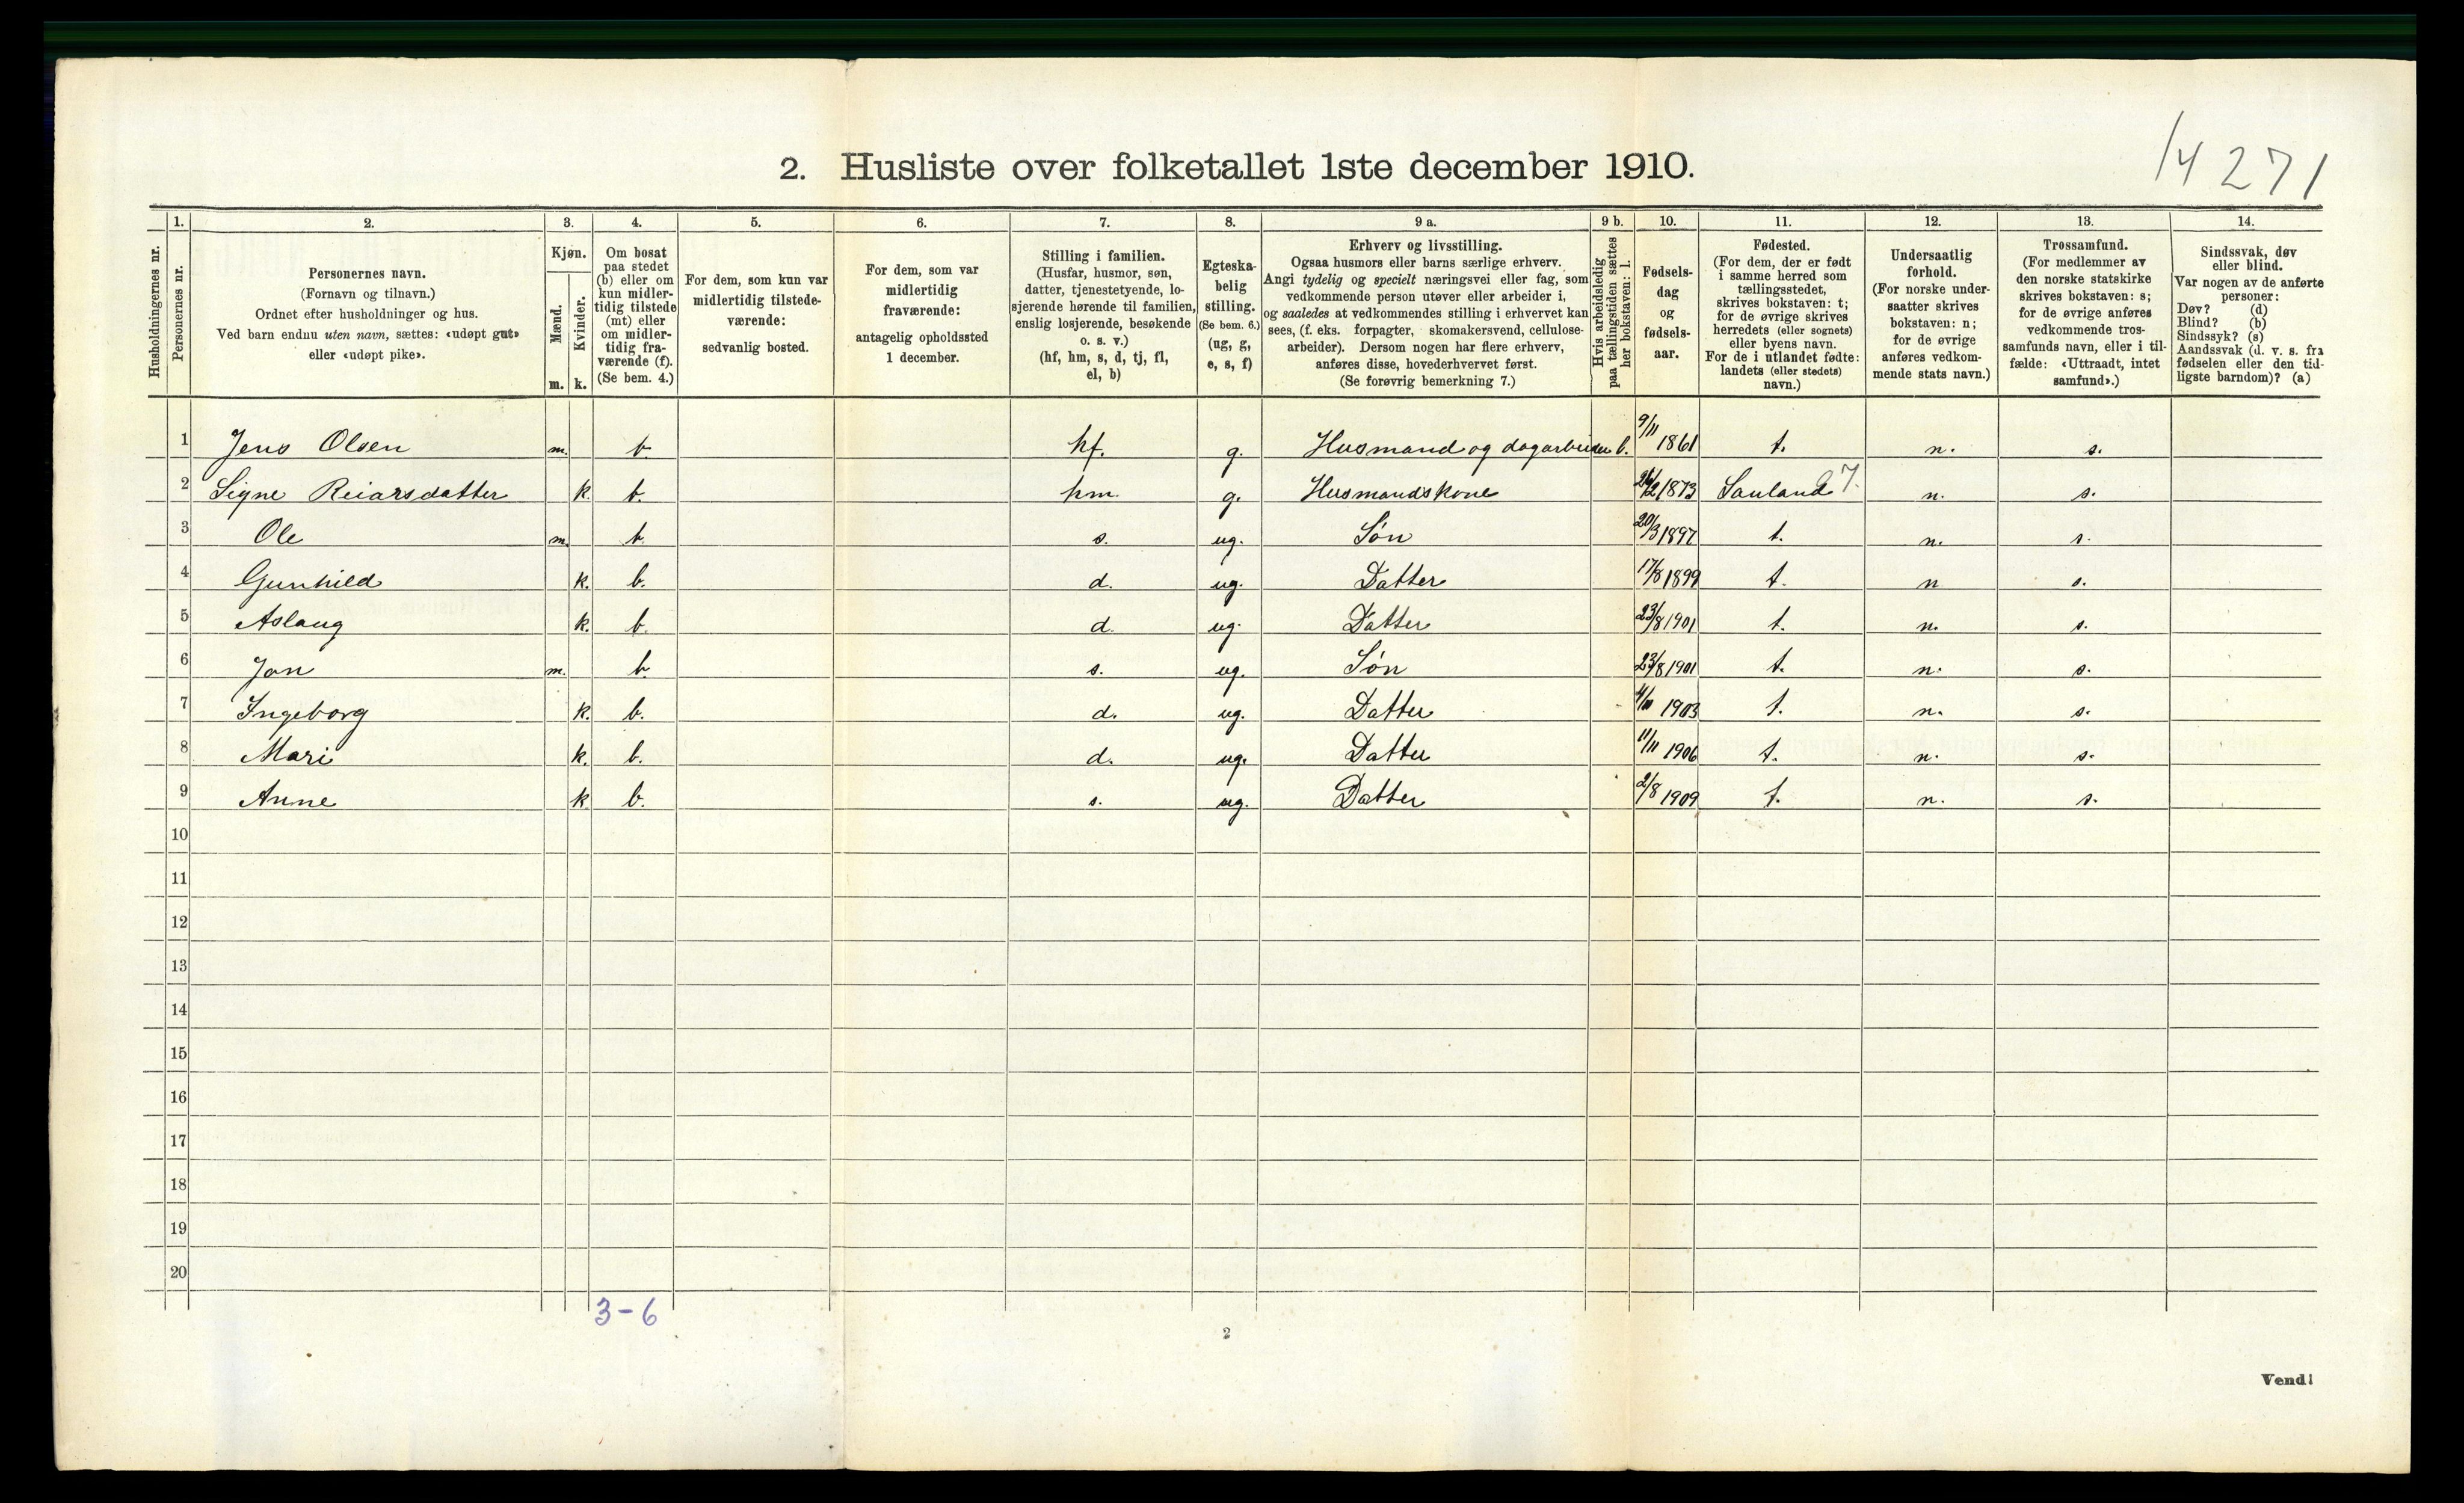 14271
2. Husliste over folketallet 1ste december 1910.
Husholdningernes nr.
1.
Personernes nr.
2.
Personernes navn.
(Fornavn og tilnavn.)
Ordnet efter husholdninger og hus.
Ved barn endnu uten navn, sættes: «udøpt gut»
eller «udøpt pike».
3.
Kjøn.
Mænd.
Kvinder.
m. k.
4.
Om bosat
paa stedet
(b) eller om
kun midler-
tidig tilstede
(mt) eller
om midler-
tidig fra-
værende (f).
(Se bem. 4.)
5.
For dem, som kun var
midlertidig tilstede-
værende:
sedvanlig bosted.
6.
For dem, som var
midlertidig
fraværende:
antagelig opholdssted
1 december.
7.
Stilling i familien.
(Husfar, husmor, søn,
datter, tjenestetyende, lo-
sjerende hørende til familien,
enslig losjerende, besøkende
o. s. v.)
(hf, hm, s, d, tj, fl,
el, b)
8.
Egteska-
belig
stilling.
(Se bem. 6.)
(ug, g,
e, s, f)
9 a.
Erhverv og livsstilling.
Ogsaa husmors eller barns særlige erhverv.
Angi tydelig og specielt næringsvei eller fag, som
vedkommende person utøver eller arbeider i,
og saaledes at vedkommendes stilling i erhvervet kan
sees, (f. eks. forpagter, skomakersvend, cellulose-
arbeider). Dersom nogen har flere erhverv,
anføres disse, hovederhvervet først.
(Se forøvrig bemerkning 7.)
9 b.
Hvis arbeidsledig
paa tællingstiden sættes
her bokstaven: l.
10.
Fødsels-
dag
og
fødsels-
aar.
11.
Fødested.
(For dem, der er født
i samme herred som
tællingsstedet,
skrives bokstaven: t;
for de øvrige skrives
herredets (eller sognets)
eller byens navn.
For de i utlandet fødte:
landets (eller stedets)
navn.)
12.
Undersaatlig
forhold.
(For norske under-
saatter skrives
bokstaven: n;
for de øvrige
anføres vedkom-
mende stats navn.)
13.
Trossamfund.
(For medlemmer av
den norske statskirke
skrives bokstaven: s;
for de øvrige anføres
vedkommende tros-
samfunds navn, eller i til-
fælde: «Uttraadt, intet
samfund».)
14.
Sindssvak, døv
eller blind.
Var nogen av de anførte
personer:
Døv? (d)
Blind? (b)
Sindssyk? (s)
Aandssvak (d. v. s. fra
fødselen eller den tid-
ligste barndom)? (a)
1 Jens Olsen m. b. hf. g. Husmand og dagarbeider l. 9/11 1861 t. n. s.
2 Signe Reiarsdatter k. b. hm. g. Husmandskone 1873 Sauland 27. n. s.
3 Ole m. b. s. ug. Søn 20/3 1897 t. n. s.
4 Gunhild k. b. d. ug. Datter 17/8 1899 t. n s.
5 Aslaug k. b. d. ug. Datter 23/8 1901 t. n. s.
6 Jon m. b. s. ug. Søn 23/8 1901 t. n. s.
7 Ingeborg k. b. d. ug. Datter 1903 t. n. s.
8 Mari k. b. d. ug. Datter 11/11 1906 t. n. s.
9 Anne k b. s. ug. Datter 2/8 1909 t. n. s.
10
11
12
13
14
15
16
17
18
19
20
3-6
2
Vend!